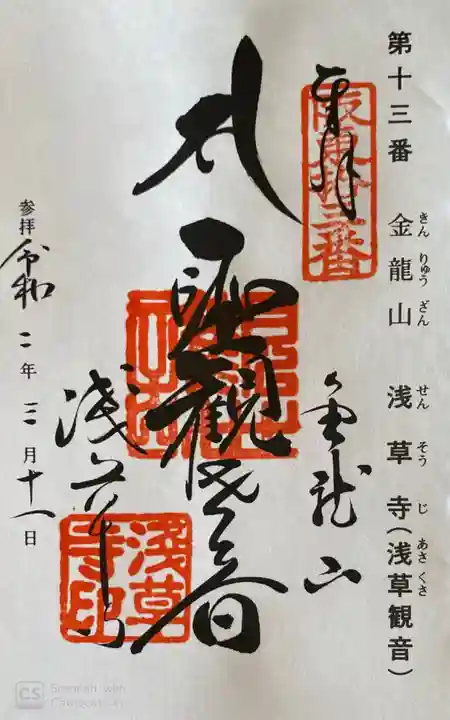 第十三番 金龍山 浅草寺(浅草観音)
きん りゅう ざん せん そう じ あさ くさ
奉拝
坂東拾三番
金龍山
聖観世音
浅草寺
浅草寺印
参拝 令和二年三月十一日
CS Scanned with
CamScanner